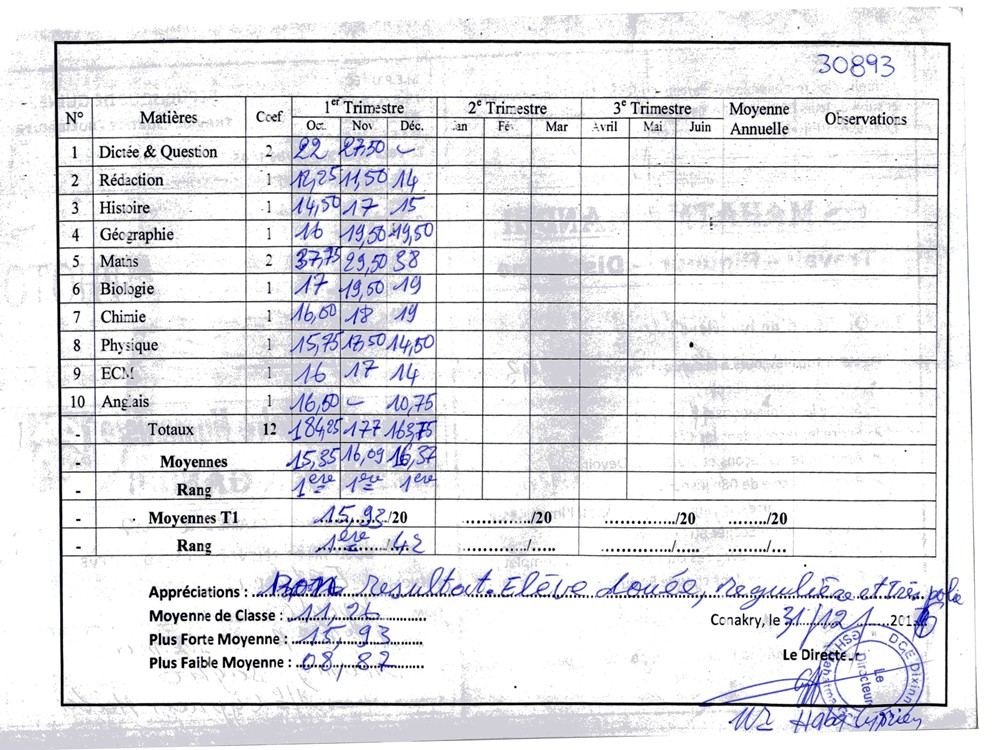 30893
N° Matières Coef 1er Trimestre 2e Trimestre 3e Trimestre Moyenne Annuelle Observations
Oct. Nov. Déc. Jan Fév Mar Avril Mai Juin
1 Dictée & Question 2 22 27,50 –
2 Rédaction 1 12,25 11,50 14
3 Histoire 1 14,50 17 15
4 Géographie 1 16 19,50 19,50
5 Maths 2 37,75 29,50 38
6 Biologie 1 17 19,50 19
7 Chimie 1 16,00 18 19
8 Physique 1 15,75 17,50 14,50
9 ECM 1 16 17 14
10 Anglais 1 16,50 – 10,75
- Totaux 12 184,25 177 163,75
- Moyennes 15,35 16,09 16,37
- Rang 1ère 1ère 1ère
- Moyennes T1 15,93/20 ............./20 ............./20 ......../20
- Rang 1ère/42 ............./..... ............./..... ......../...
Appréciations : Bon resultat. Elève douée, regulière et très polie
Moyenne de Classe : 11,26
Conakry, le 31/12/201
Plus Forte Moyenne : 15,93
Plus Faible Moyenne : 08,87
Le Directeur
DCE Dixinn
Le Directeur
Mr Haba Cyprien